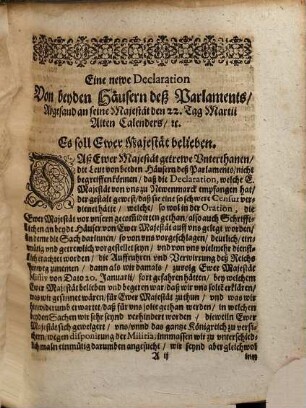 Eine newe Declaration
Von beyden Häusern deß Parlaments/
Abgesand an seine Majestät den 22. Tag Martii
Alten Calenders/ ꝛc.
Es soll Ewer Majestät belieben.
DAß Ewer Majestät getrewe Unterthanen/
die Leut von beiden Häusern deß Parlaments/ nicht
begreiffen können/ daß die Declaration, welche E.
Majestät von uns zu Newenmarck empfangen hat/
der gestalt gewest/ daß sie eine so schwere Censur
verdienet hätte/ welche/ so wol in der Oration, die
Ewer Majestät vor unsern gethan/ also auch Schrifftlichen
an beyde Häuser von Ewer Majestät auß uns gelegt worden/
In deme die Sach darinnen/ so von uns vorgeschlagen/
mütig und getrewlich vorgestellet seyn/ und von uns
erachtet worden/ die Auffruhren und Verwirrung deß Reichs
hinweg zunemen/ dann als wir damals/ zufolg Ewer Majestät
von Dato 20. Januarii, fort gefahren hätten/ bey welchem
Ewer Majestät belieben und begeren war/ daß wir uns solte erklären/
was wir gesinnet wären/ für Ewer Majestät zuthun/ und was wir
hinwider erwartet/ daß für uns solte gethan werden/ in welchen
beyden Sachen wir sehr seynd verhindert worden/ dieweiln Ewer
Majestät sich geweigert/ uns/ unnd das gantze Königreich zu
wegen disponirung der Militia, immassen wir zu unterschiedlichmaln
einmütig darumben angesucht/ wir seynd aber gleichwol
A ij